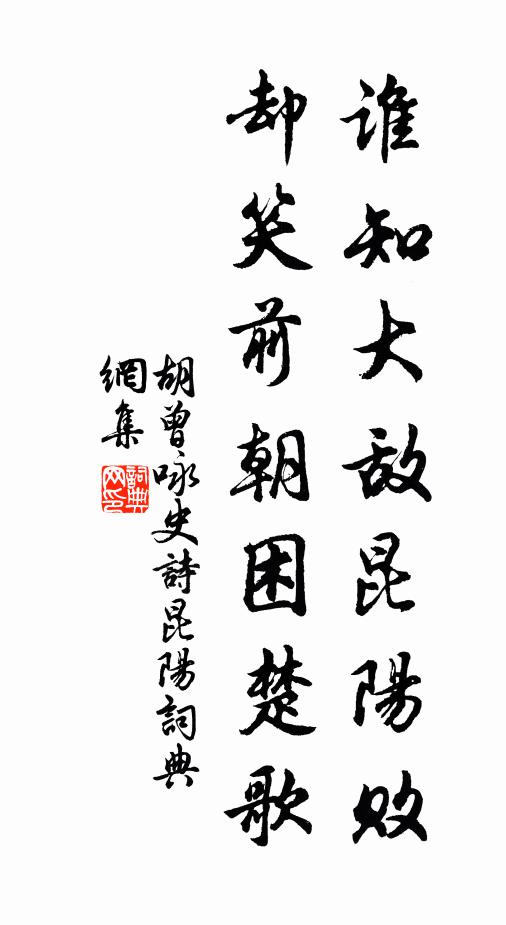 誰知大敵昆陽敗
却笑前朝困楚歌
胡曾咏史詩昆陽詞典
網集
詞典
网印